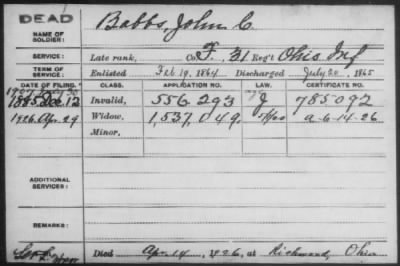 DEAD
NAME OF SOLDIER: Babbs, John C.
SERVICE: Late rank, Co. F, 31 Reg't Ohio Inf
TERM OF SERVICE: Enlisted Feb 19, 1864 Discharged July 20, 1865
DATE OF FILING. CLASS. APPLICATION NO. LAW. CERTIFICATE NO.
1885 Dec. 12 Invalid, 556.293 J 785092
1926 Apr. 29 Widow, 1,537,049 a-6-14-26
Minor,
ADDITIONAL SERVICES:
REMARKS:
Died Apr. 14, 1926, at Richwood, Ohio